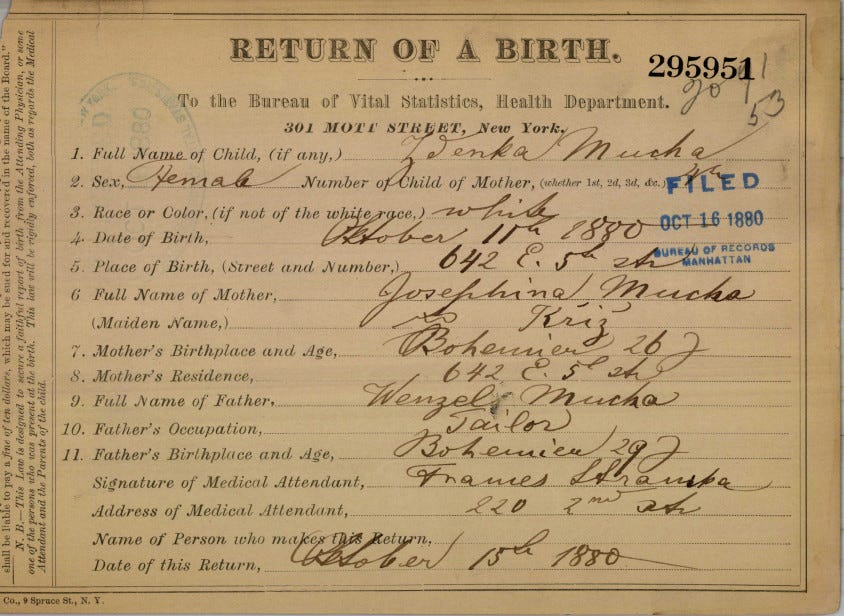 RETURN OF A BIRTH.
295951
53
To the Bureau of Vital Statistics, Health Department.
301 MOTT STREET, New York.
1. Full Name of Child, (if any,) Zdenka Mucha
2. Sex, Female Number of Child of Mother, (whether 1st, 2d, 3d, &c.)
FILED
3. Race or Color, (if not of the white race,) white
OCT 16 1880
4. Date of Birth, October 11th 1880
BUREAU OF RECORDS
MANHATTAN
5. Place of Birth, (Street and Number,) 642 E. 5th str
6 Full Name of Mother, Josephina Mucha
(Maiden Name,) Kříž
7. Mother's Birthplace and Age, Bohemier 26 J
8. Mother's Residence, 642 E. 5th str
9. Full Name of Father, Wenzel Mucha
10. Father's Occupation, Tailor
11. Father's Birthplace and Age, Bohemier 29 J
Signature of Medical Attendant,
Address of Medical Attendant, 220 2nd str
Name of Person who makes this Return,
Date of this Return, October 15th 1880
Co., 9 Spruce St., N. Y.
shall be liable to pay a fine of ten dollars, which may be sued for and recovered in the name of the Board."
N. B.—This Law is designed to secure a faithful report of birth from the Attending Physician, or some
one of the persons who was present at the birth. This law will be rigidly enforced, both as regards the Medical
Attendant and the Parents of the child.